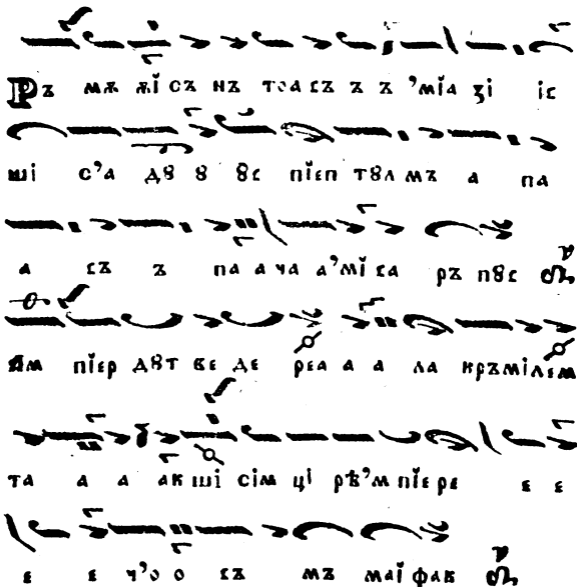 Рꙋ мѫ ѫй сꙋ нꙋ тоа съ ъ ъ ’мїа ꙁі іс
ші с’а дꙋ ꙋ ꙋс пїеп тꙋл мъ а па
а съ ъ па а ча а’мі са ръ пꙋс
Ам пїер дꙋт ве де реа а а ла кръмілем
та а а ак ші сім ці рѣ’м пїере ε ε
ε ε ч’о о съ мъ маї фак